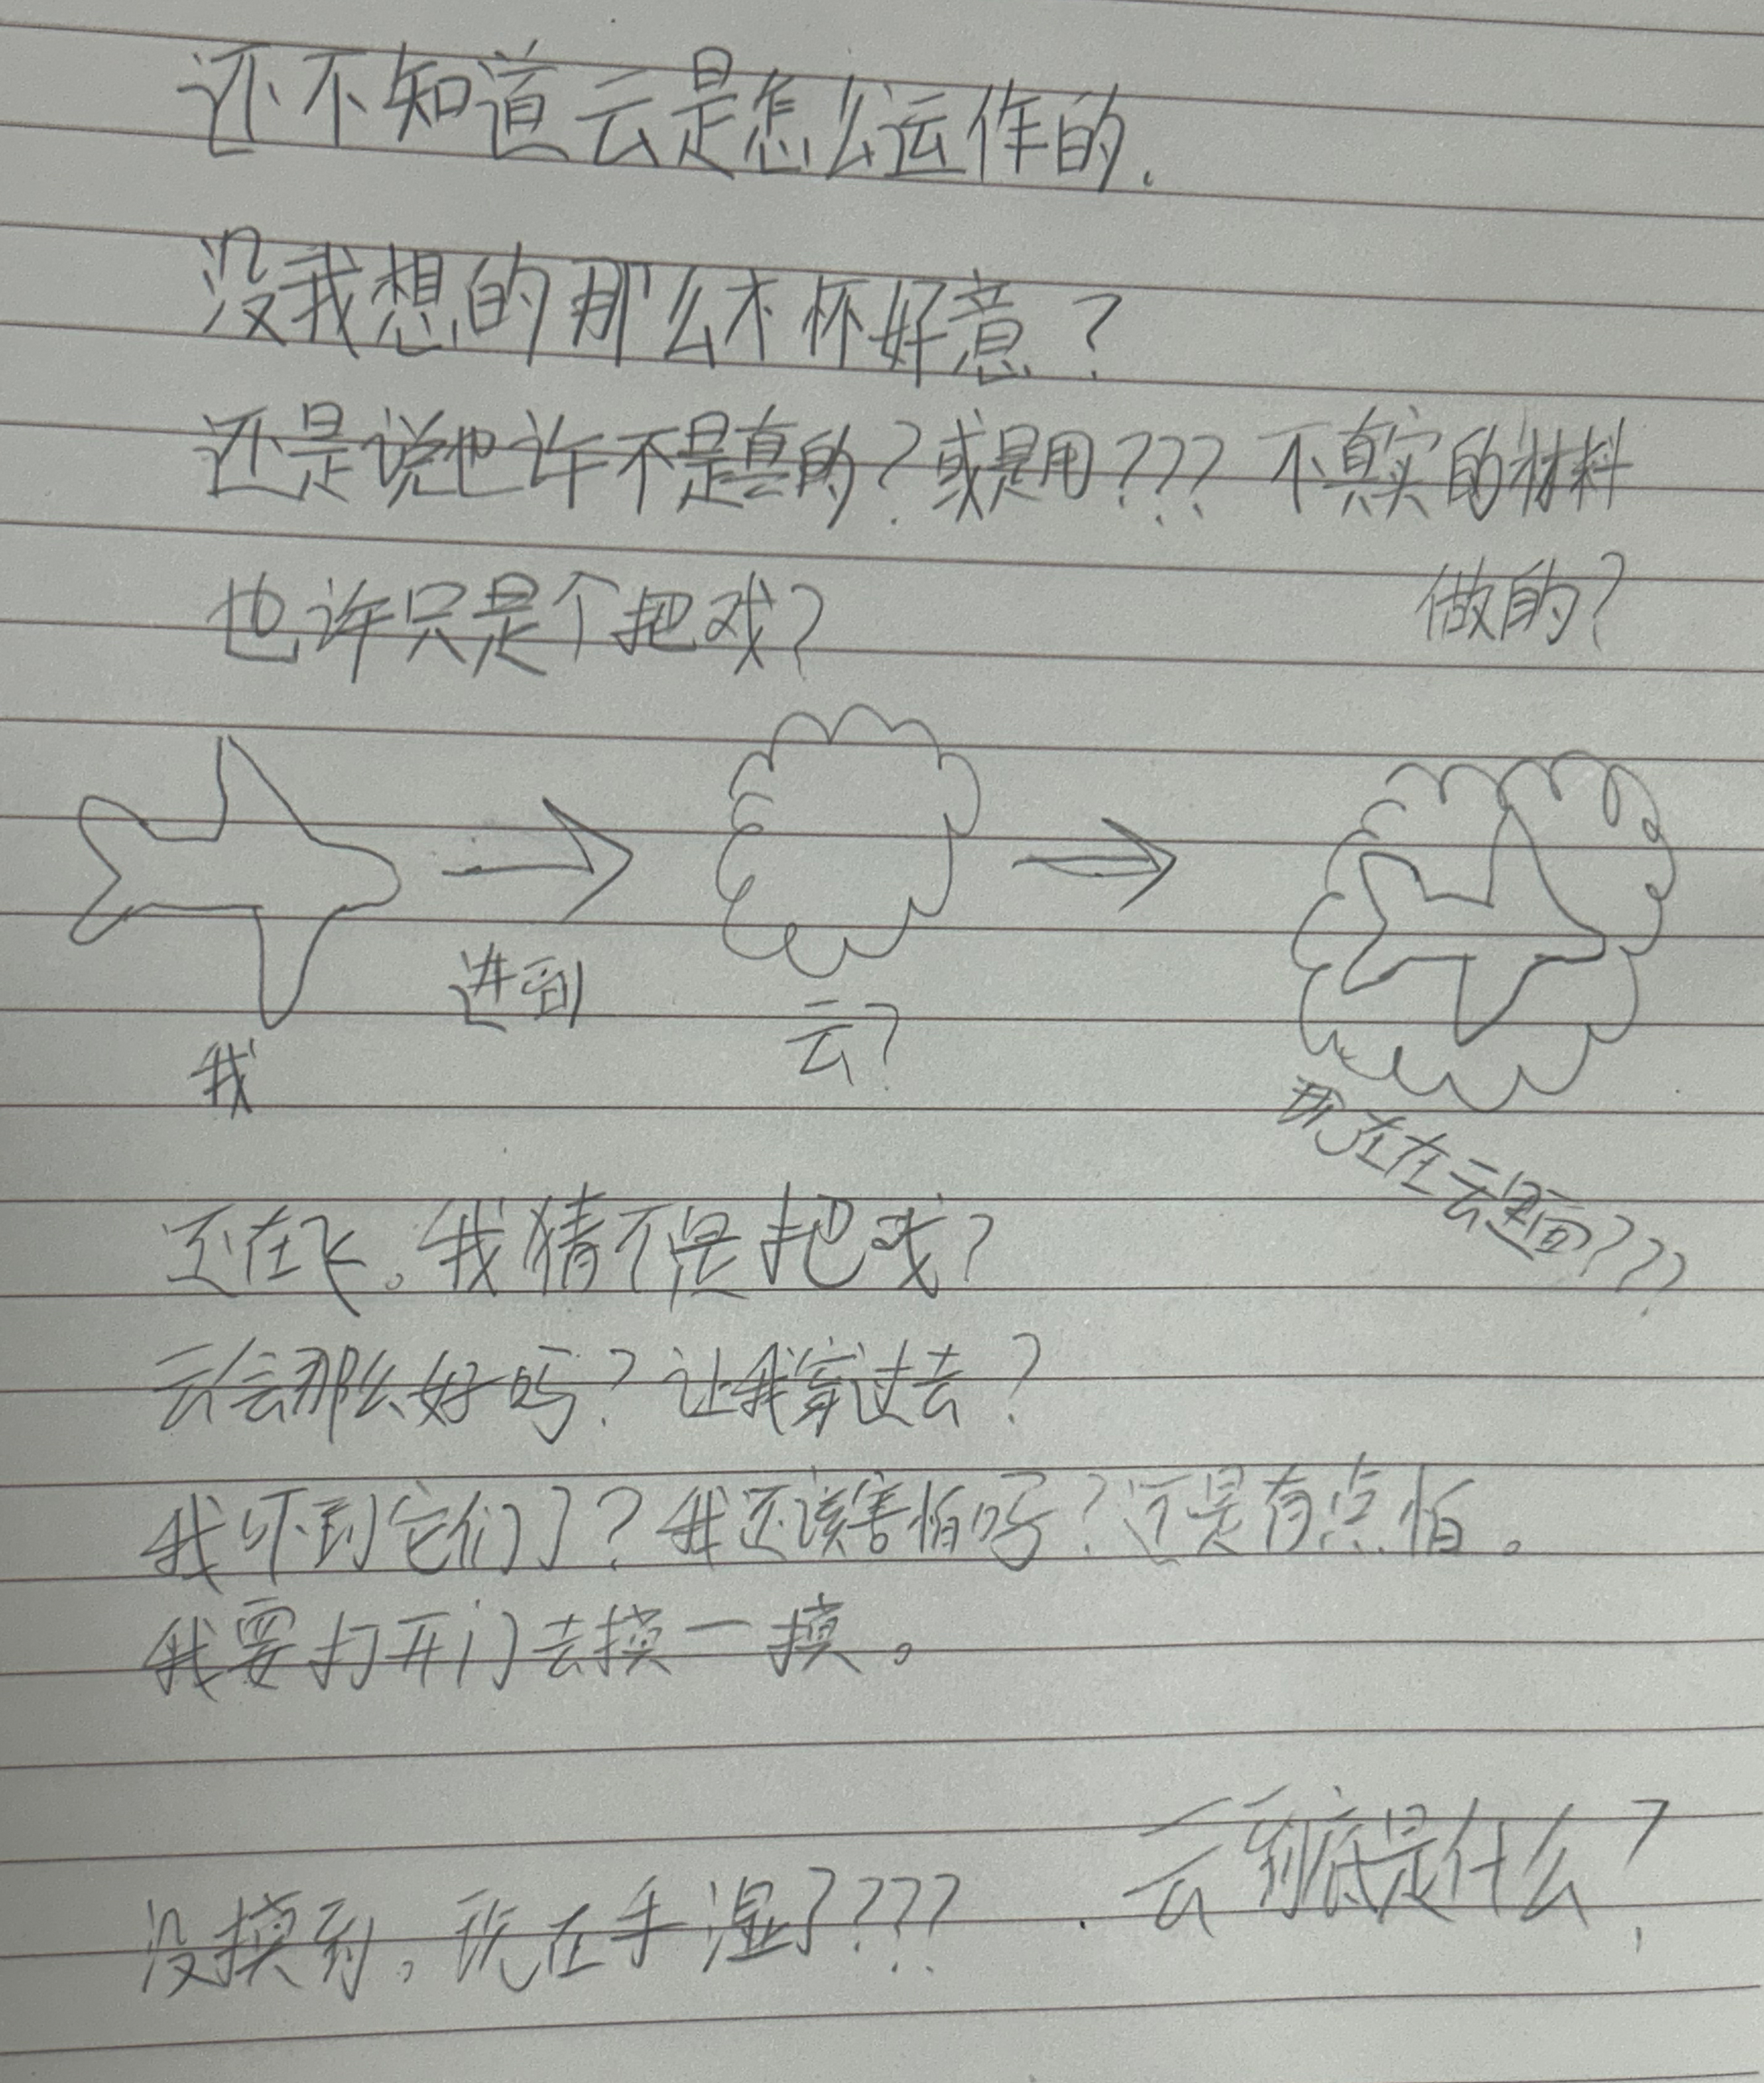 还不知道云是怎么运作的.
没我想的那么不怀好意？
还是说也许不是真的？或是用？？？不真实的材料
做的？
也许只是个把戏？
我
进到
云？
现在在云里面？？？
还在飞。我猜不是把戏？
云会那么好吗？让我穿过去？
我吓到它们了？我还该害怕吗？还是有点怕。
我要打开门去摸一摸。
云到底是什么？
没摸到。现在手湿了？？？